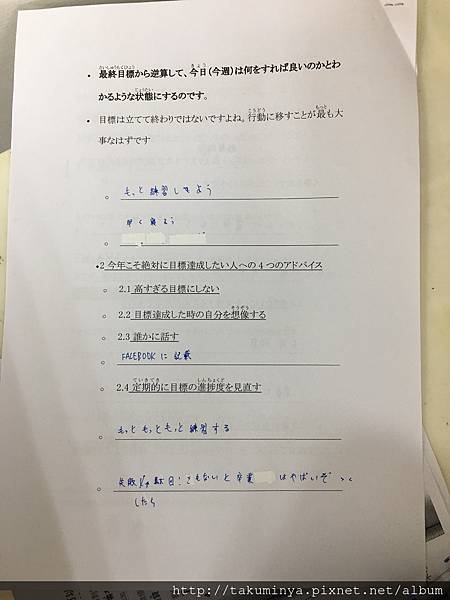 最終目標から逆算して、今日(今週)は何をすれば良いのかとわ
かるような状態にするのです。
目標は立てて終わりではないですよね。行動に移すことが最も大
事なはずです
もっと練習しましょう
早く寝よう
2 今年こそ絶対に目標達成したい人への4つのアドバイス
2.1 高すぎる目標にしない
2.2 目標達成した時の自分を想像する
2.3 誰かに話す
FACEBOOKに記載
2.4 定期的に目標の進捗度を見直す
もっともっともっと練習する
失敗 駄目!さもないと卒業 はやばいぞ
したら
http://takuminya.pixnet.net/album